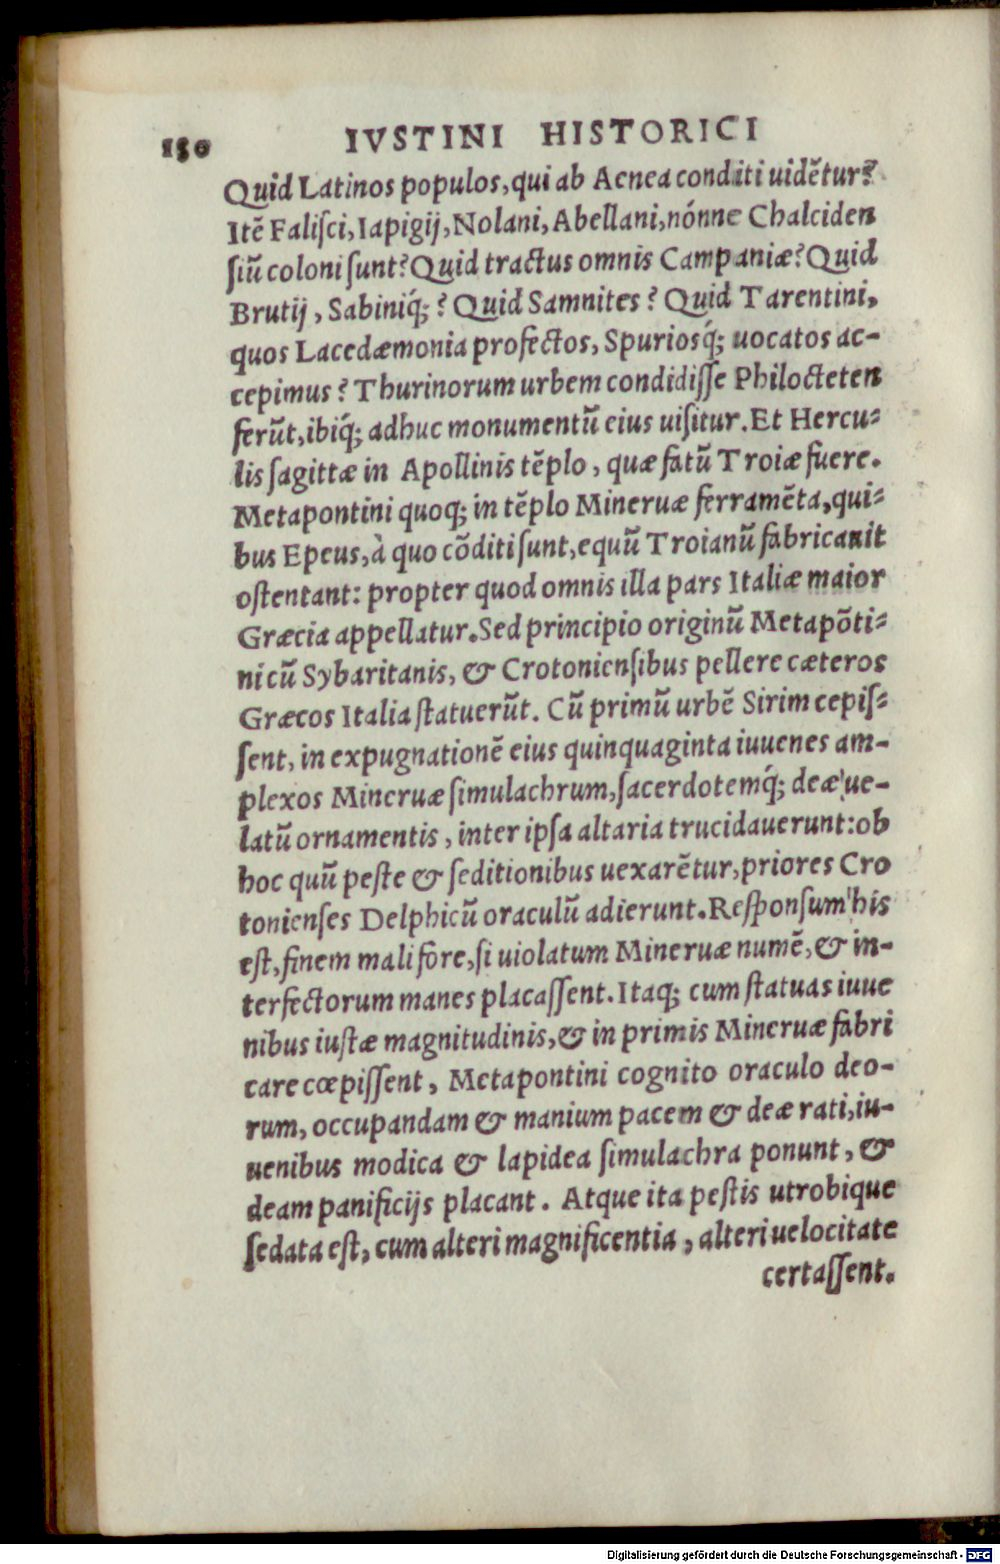 150 IVSTINI HISTORICI
Quid Latinos populos, qui ab Aenea conditi uidẽtur?
Itẽ Faliſci, Iapigij, Nolani, Abellani, nónne Chalciden
ſiũ coloni ſunt? Quid tractus omnis Campaniæ? Quid
Brutij, Sabiniq́;? Quid Samnites? Quid Tarentini,
quos Lacedæmonia profectos, Spuriosq́; uocatos ac-
cepimus? Thurinorum urbem condidiſſe Philocteten
ferũt, ibiq́; adhuc monumentũ eius uiſitur. Et Hercu-
lis ſagittæ in Apollinis tẽplo, quæ fatũ Troiæ fuere.
Metapontini quoq; in tẽplo Mineruæ ferramẽta, qui-
bus Epeus, à quo cõditi ſunt, equũ Troianũ fabricauit
oſtentant: propter quod omnis illa pars Italiæ maior
Græcia appellatur. Sed principio originũ Metapõti-
ni cũ Sybaritanis, & Crotonienſibus pellere cæteros
Græcos Italia ſtatuerũt. Cũ primũ urbẽ Sirim cepiſ-
ſent, in expugnationẽ eius quinquaginta iuuenes am-
plexos Mineruæ ſimulachrum, ſacerdotemq́; deæ ue-
latũ ornamentis, inter ipſa altaria trucidauerunt: ob
hoc quũ peſte & ſeditionibus uexarẽtur, priores Cro
tonienſes Delphicũ oraculũ adierunt. Reſponſum his
eſt, finem mali fore, ſi uiolatum Mineruæ numẽ, & in-
terfectorum manes placaſſent. Itaq; cum ſtatuas iuue
nibus iuſtæ magnitudinis, & in primis Mineruæ fabri
care cœpiſſent, Metapontini cognito oraculo deo-
rum, occupandam & manium pacem & deæ rati, iu-
uenibus modica & lapidea ſimulachra ponunt, &
deam panificijs placant. Atque ita peſtis utrobique
ſedata eſt, cum alteri magnificentia, alteri uelocitate
certaſſent.
Digitalisierung gefördert durch die Deutsche Forschungsgemeinschaft - DFG